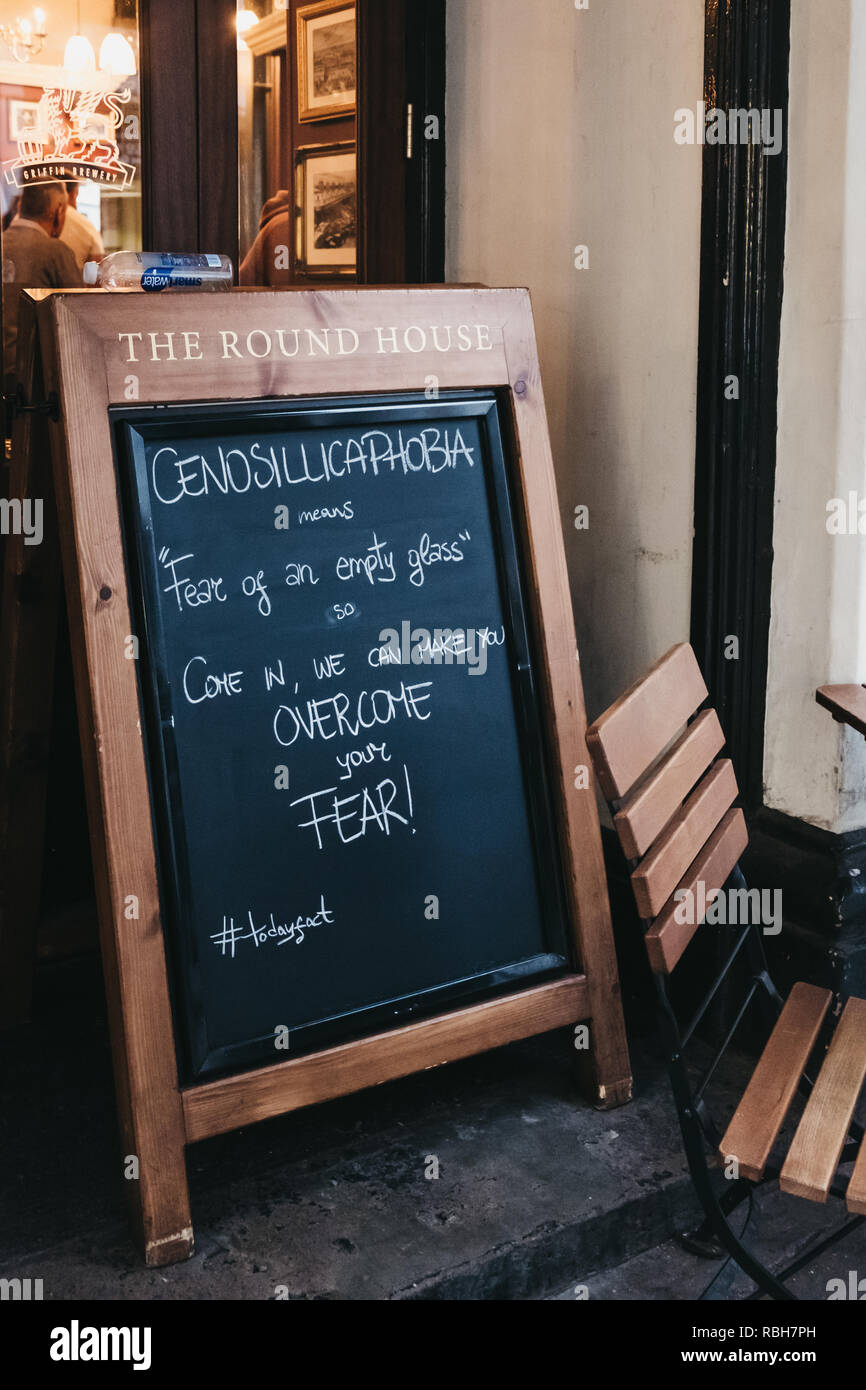 GRIFFIN BREWERY
smartwater
THE ROUND HOUSE
CENOSILLICAPHOBIA
means
"Fear of an empty glass"
so
COME IN, WE CAN MAKE YOU
OVERCOME
your
FEAR!
#todayfact
alamy
Image ID: RBH7PH
www.alamy.com